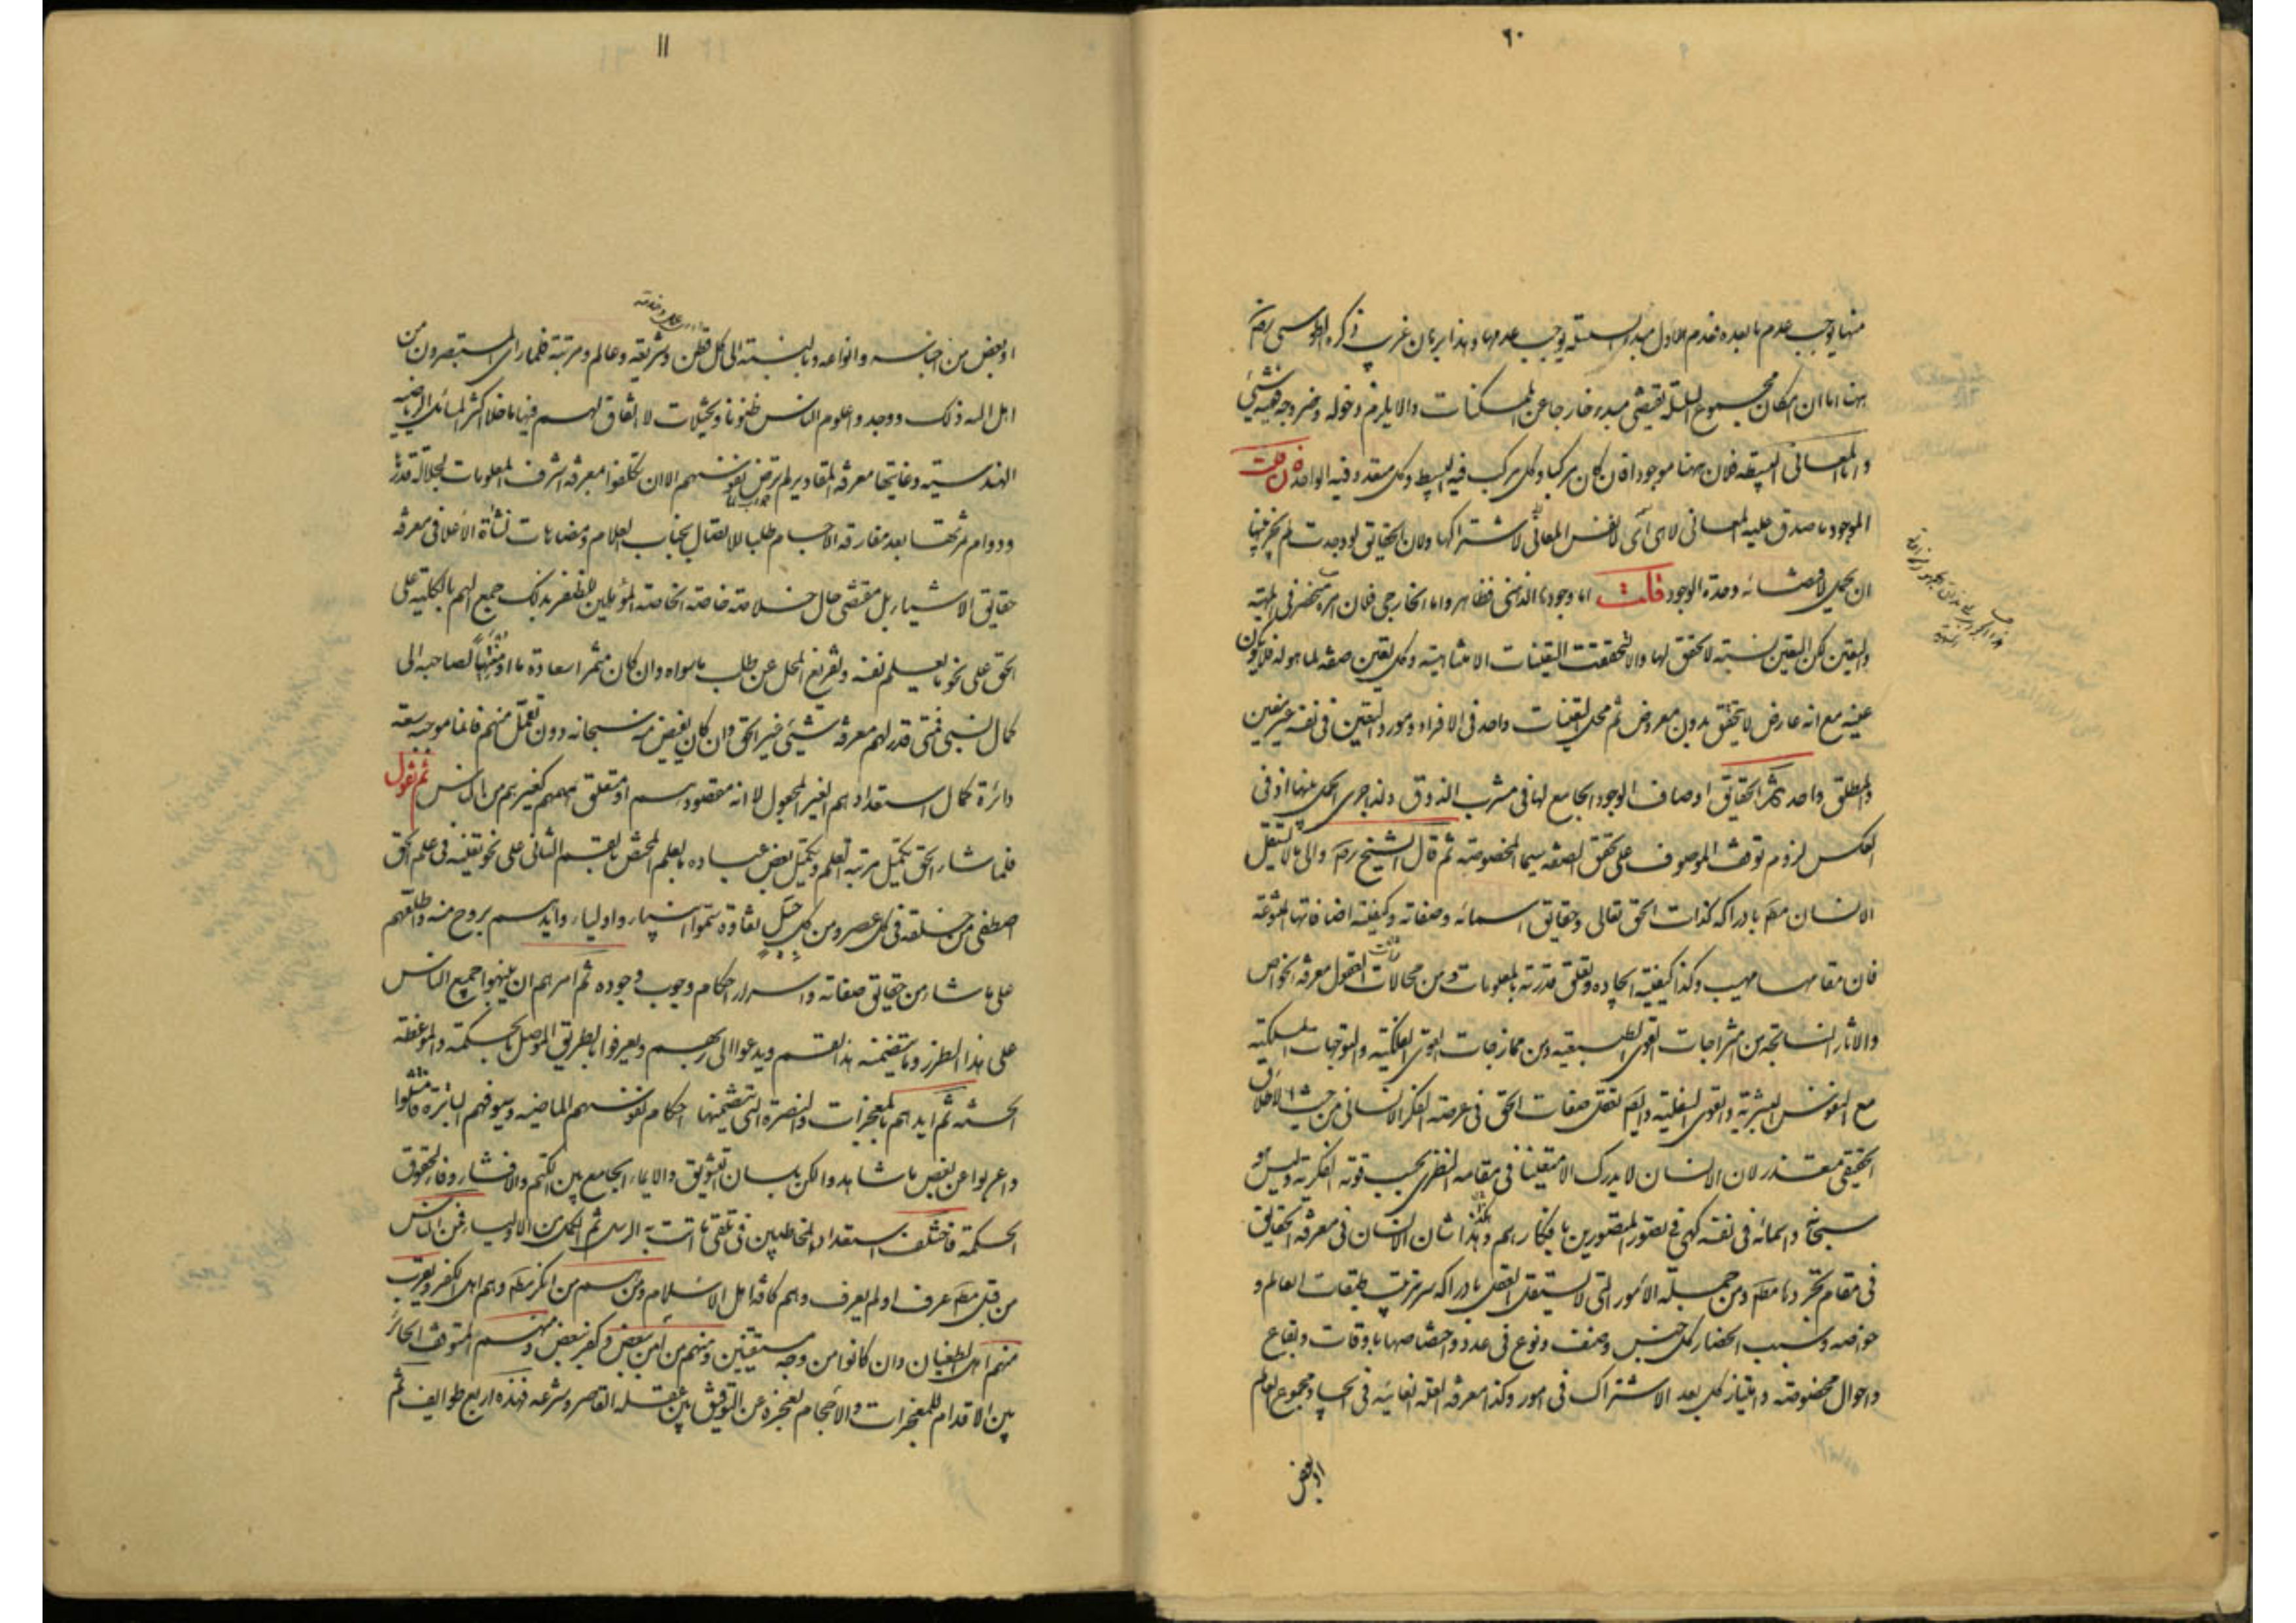 ١٠
منها يوجب عدم ما بعده فعدم الاول مبدء السلسلة يوجب عدمها وهذا برهان غريب ذكره الطوسى رحمه
هنا اما ان امكان مجموع السلسلة يقتضى مبدء خارجا عن الممكنات والا يلزم دخوله وخروجه
واما المعانى البسيطة فلان ههنا موجودا فان كان مركبا وكل مركب فيه البسيط وكل متعدد فيه الواحد فان قلت
الموجود ما صدق عليه المعانى لا نفس المعانى لاشتراكها ولان الحقايق لو وجدت لم يجز فيها
ان يحكى لاقتضائه وحدة الوجود قلت اما وجودها الذهنى فظاهر واما الخارجى فلان امره منحصر فى المهية
والتعين لكن التعين نسبة لا تحقق لها والا لتحققت التعينات الا متناهية وكل تعين صفة لما هو له فلا يكون
عينه مع انه عارض لا يتحقق بدون معروض ثم محل التعينات واحد فى الافراد ومورد التعين فى نفسه غير متعين
والمطلق واحد ثم الحقايق اوصاف الوجود الجامع لها فى مشرب الذوق ولذا جرى الحكم بينها اذ فى
العكس لزوم توقف الموصوف على تحقق الصفة سيما المخصوصة ثم قال الشيخ رضه والى ما لا يستقل
الانسان بادراكه كذات الحق تعالى وحقايق اسمائه وصفاته وكيفية اضافتها المتنوعة
فان مقامها مهيب وكذا كيفية ايجاده وتعلق قدرته بالمعلومات ومن محالات العقول معرفة الخواص
والاثار الناتجة من امتزاجات القوى الطبيعية ومن ممازجات القوى الفلكية والتوجهات الملكية
مع النفوس البشرية والقوى السفلية وايضا تعقل صفات الحق فى عرصة الفكر الانسانى من حيث الاطلاق
الحقيقى متعذر لان الانسان لا يدرك الا متعينا فى مقامه النظرى بحسب قوته الفكرية وليس هو
سبحانه واسمائه فى نفسه كهى فى تصور المتصورين بافكارهم وهكذا شان الانسان فى معرفة الحقايق
فى مقام تجردها مطلقا ومن جملة الامور التى لا يستقل العقل بادراكه سر ترتيب طبقات العالم و
خواصه وسبب انحصار كل جنس وصنف ونوع فى عدد واختصاصها باوقات وبقاع
واحوال مخصوصة وامتياز كل بعد الاشتراك فى امور وكذا معرفة العلة الغائية فى ايجاد مجموع العالم
او بعض
١١
او بعض من اجناسه وانواعه وبالنسبة الى كل قطر وشريعة وعالم ومرتبة فلما راى المستبصرون من
اهل الله ذلك ووجدوا علوم الناس ظنونا وتخيلات لا اتفاق لهم فيها ما خلا اكثر المسائل الرياضية
الهندسية وغايتها معرفة المقادير لم ترض نفوسهم الا ان تكلفوا بمعرفة اشرف المعلومات لجلالة قدرها
ودوام ثمرتها بعد مفارقة الاجسام طلبا للاتصال بجناب العلام ومضاهات نشاة الاعلا فى معرفة
حقايق الاشياء بل مقتضى حال خلاصة خاصة الخاصة المؤهلين للظفر بذلك جمع الهم بالكلية على
الحق على نحو ما يعلم نفسه وتفريغ المحل عن طلب ما سواه وان كان مثمرا سعادة ما او منتهيا لصاحبه الى
كمال نسبى فمتى قدر لهم معرفة شيئ غير الحق وان كان بفيض منه سبحانه دون تعمل منهم فانما موجبه سعة
دائرة كمال استعدادهم الغير المجعول لا انه مقصودهم او متعلق هممهم كغيرهم من الناس ثم نقول
فلما شاء الحق تكميل مرتبة العلم وتكميل بعض عباده بالعلم المختص بالقسم الثانى على نحو تعينه فى علم الحق
اصطفى من خلقه فى كل عصر ومن كل جيل نقاوة سموا انبياء واولياء وايدهم بروح منه واطلعهم
على ما شاء من حقايق صفاته واسرار احكام وجوب وجوده ثم امرهم ان ينبهوا جميع الناس
على هذا الطرز وما يتضمنه هذا القسم ويدعوا الى ربهم ويعرفوا بالطريق الموصل بالحكمة والموعظة
الحسنة ثم ايدهم بالمعجزات والنصرة التى تتضمنها احكام نفوسهم الماضية وسيوفهم الباترة فامتثلوا
واعربوا عن بعض ما شاهدوا لكن بلسان التشويق والايماء الجامع بين الكتم والافشاء وفاء لحقوق
الحكمة فاختلف استعداد المخاطبين فى تلقى ما اتت به الرسل ثم الكمل من الاولياء فمن الناس
من قبل مطلقا عرف او لم يعرف وهم كافة اهل الاسلام ومنهم من انكر مطلقا وهم اهل الكفر ويقرب
منهم اهل الطغيان وان كانوا من وجه مستيقنين ومنهم من آمن ببعض وكفر ببعض ومنهم المتوقف الحائر
بين الاقدام للمعجزات والاحجام لعجزه عن التوفيق بين عقله القاصر وشرعه فهذه اربع طوايف ثم